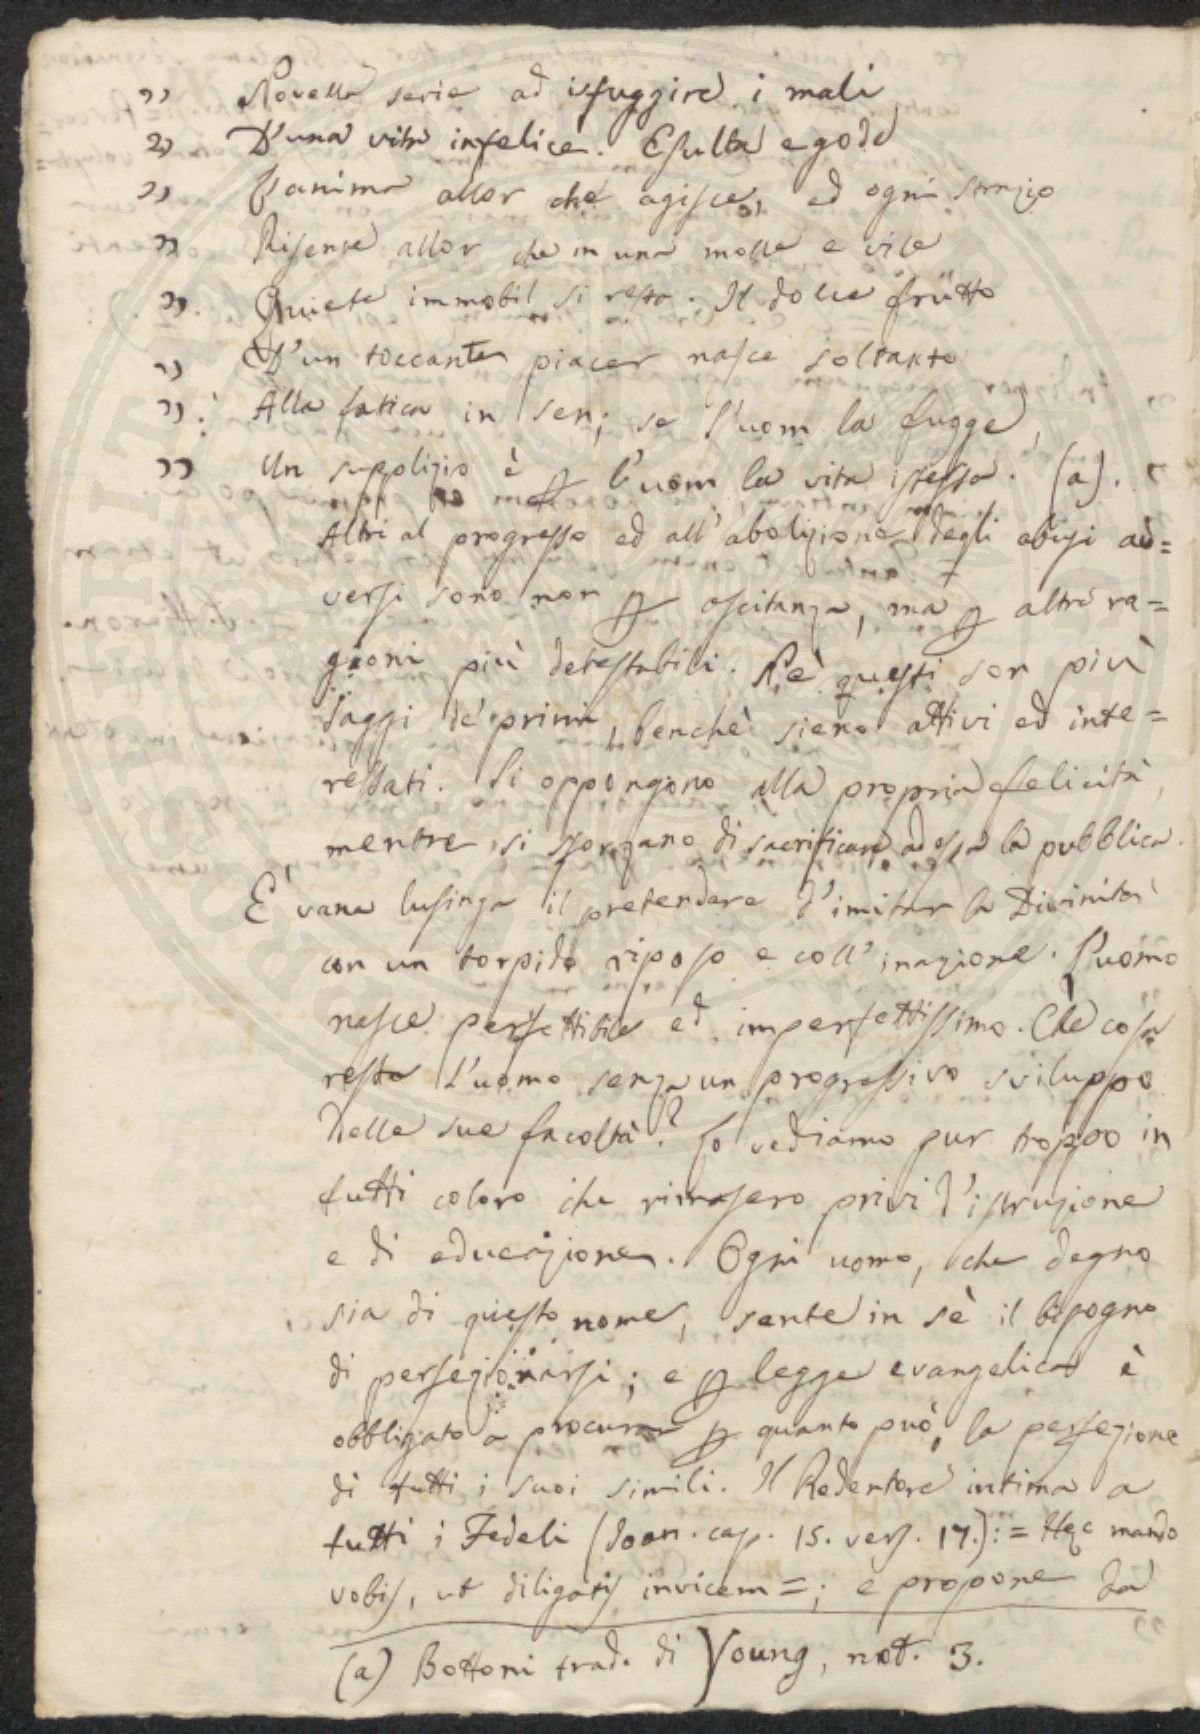 " Novella serie ad isfuggire i mali
" D'una vita infelice. Esulta e gode
" L'anima allor che agisce, ed ogni strazio
" Risente allor che in una molle e vile
" Quiete immobil si resta. Il dolce frutto
" D'un toccante piacer nasce soltanto
" Alla fatica in sen; se l'uom la fugge,
" Un supplizio è p l'uom la vita istessa. (a).
Altri al progresso ed all'abolizione degli abusi av=
versi sono non p oscitanza, ma p altre ra=
gioni più detestabili. Nè questi son più
saggi de' primi, benchè sieno attivi ed inte=
ressati. Si oppongono alla propria felicità,
mentre si sforzano di sacrificare ad essa la pubblica.
E' vana lusinga il pretendere d'imitar la Divinità
con un torpido riposo e coll'inazione. L'uomo
nasce perfettibile ed imperfettissimo. Che cosa
resta l'uomo senza un progressivo sviluppo
delle sue facoltà? Lo vediamo pur troppo in
tutti coloro che rimasero privi d'istruzione
e di educazione. Ogni uomo, che degno
sia di questo nome, sente in sè il bisogno
di perfezionarsi; e p legge evangelica è
obbligato a procurar p quanto può, la perfezione
di tutti i suoi simili. Il Redentore intima a
tutti i Fedeli (Joan. cap. 15. vers. 17.): = Hęc mando
vobis, ut diligatis invicem =; e propone da
(a) Bottoni trad. di Young, not. 3.